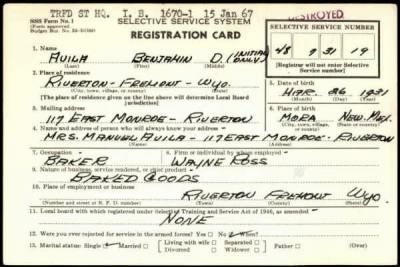 TRFD ST HQ. I. B. 1670-1 15 Jan 67
DESTROYED
SSS Form No. 1
(Form approved
SELECTIVE SERVICE SYSTEM
REGISTRATION CARD
SELECTIVE SERVICE NUMBER
48 7 31 19
1. Name
AVILA BENJAMIN D. (INITIAL ONLY)
(Last) (First) (Middle)
Registrar will not enter Selective Service number
2. Place of residence
RIVERTON - FREMONT - WYO.
(City, town, village, or county) (State)
[The place of residence given on the line above will determine Local Board jurisdiction]
5. Date of birth
MAR. 26 1931
(Month) (Day) (Year)
3. Mailing address
117 EAST MONROE - RIVERTON
6. Place of birth
MORA NEW. MEX.
4. Name and address of person who will always know your address
MRS. MANUEL AVILA - 117 EAST MONROE - RIVERTON
7. Occupation
BAKER
8. Firm or individual by whom employed
WAYNE ROSS
9. Nature of business, service rendered, or chief product
BAKED GOODS
10. Place of employment or business
RIVERTON FREMONT WYO.
(Street and number or R. F. D. number) (City) (County) (State)
11. Local board with which registered under Selective Training and Service Act of 1940, as amended
NONE
12. Were you ever rejected for service in the armed forces? Yes No ✓ When
(Date)
13. Marital status: Single ✓ Married Living with wife Separated Widower
Divorced Dependent